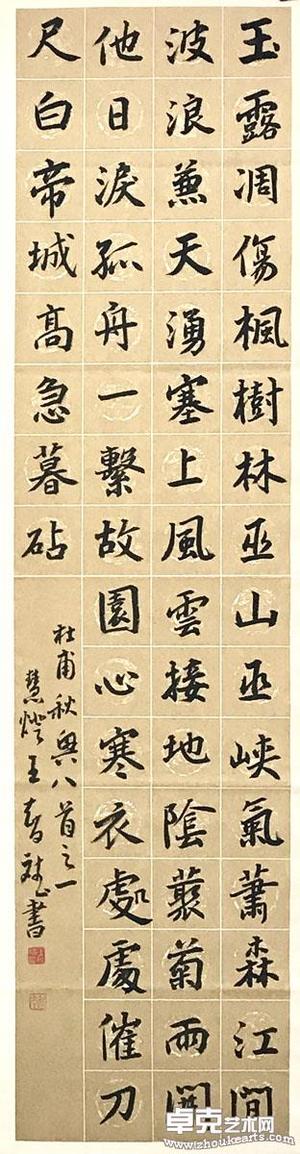 玉露凋傷楓樹林巫山巫峽氣蕭森江間
波浪兼天湧塞上風雲接地陰叢菊兩開
他日淚孤舟一繫故園心寒衣處處催刀
尺白帝城高急暮砧
杜甫秋興八首之一
慧燈王春書
卓克艺术网
www.zhoukearts.com